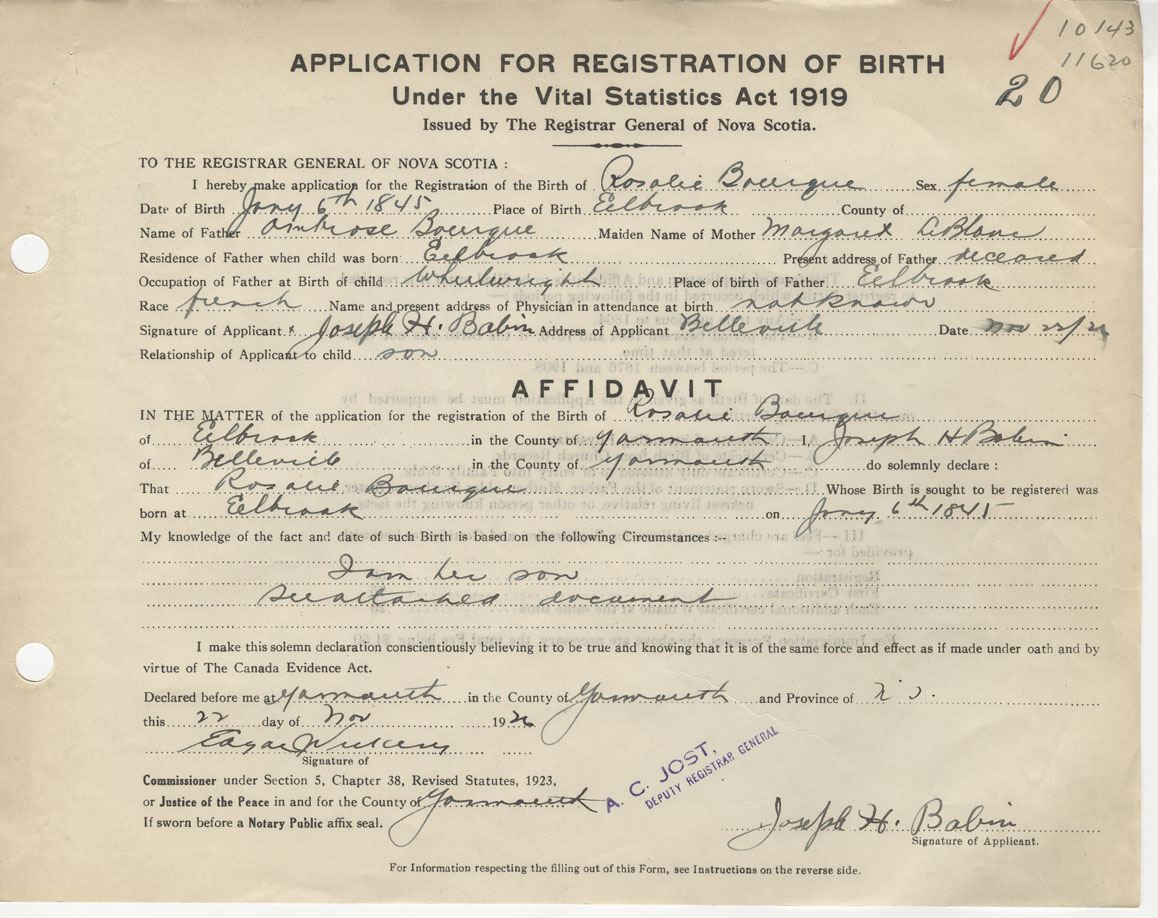 10143
11620
20
APPLICATION FOR REGISTRATION OF BIRTH
Under the Vital Statistics Act 1919
Issued by The Registrar General of Nova Scotia.
TO THE REGISTRAR GENERAL OF NOVA SCOTIA :
I hereby make application for the Registration of the Birth of Rosalie Bourque Sex female
Date of Birth Jany 6th 1845 Place of Birth Eelbrook County of
Name of Father Ambrose Bourque Maiden Name of Mother Margaret LeBlanc
Residence of Father when child was born Eelbrook Present address of Father deceased
Occupation of Father at Birth of child Wheelwright Place of birth of Father Eelbrook
Race french Name and present address of Physician in attendance at birth not known
Signature of Applicant x Joseph H. Babin Address of Applicant Belleville Date Nov 22/26
Relationship of Applicant to child son
AFFIDAVIT
IN THE MATTER of the application for the registration of the Birth of Rosalie Bourque
of Eelbrook in the County of Yarmouth I, Joseph H Babin
of Belleville in the County of Yarmouth do solemnly declare :
That Rosalie Bourque Whose Birth is sought to be registered was
born at Eelbrook on Jany 6th 1845
My knowledge of the fact and date of such Birth is based on the following Circumstances :--
I am her son
see attached document
I make this solemn declaration conscientiously believing it to be true and knowing that it is of the same force and effect as if made under oath and by
virtue of The Canada Evidence Act.
Declared before me at Yarmouth in the County of Yarmouth and Province of N S.
this 22 day of Nov 1926
Signature of
Commissioner under Section 5, Chapter 38, Revised Statutes, 1923,
or Justice of the Peace in and for the County of Yarmouth
If sworn before a Notary Public affix seal.
A. C. JOST,
DEPUTY REGISTRAR GENERAL
Joseph H. Babin
Signature of Applicant.
For Information respecting the filling out of this Form, see Instructions on the reverse side.